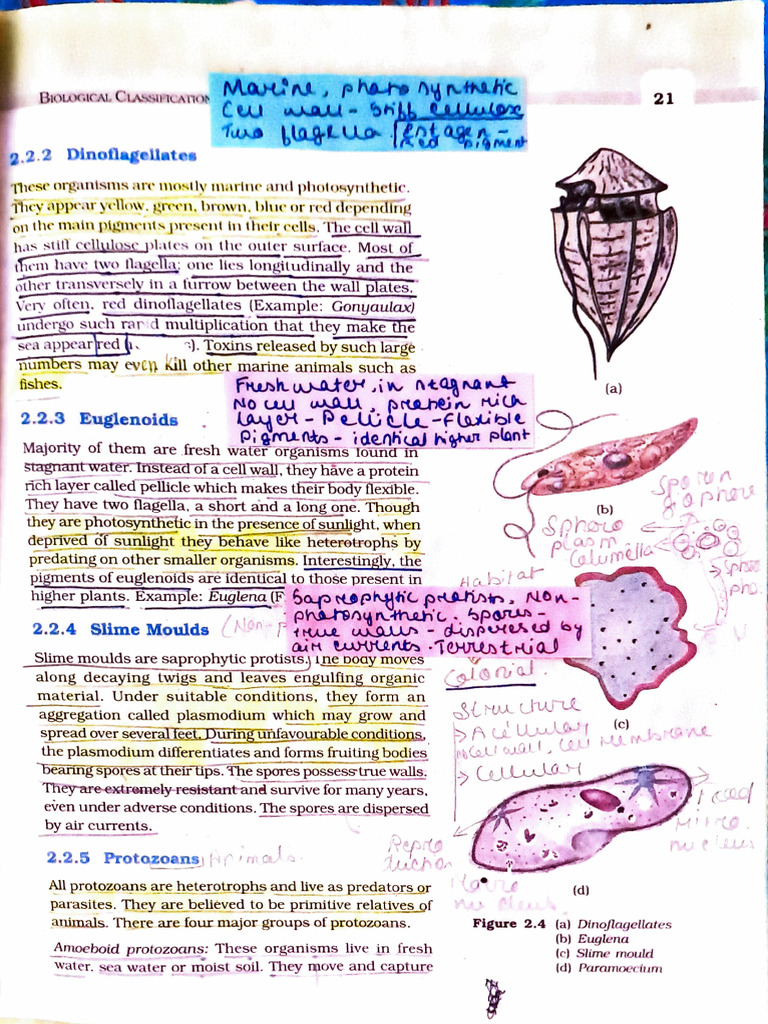 BIOLOGICAL CLASSIFICATION
21
Marine, photosynthetic
Cell wall - Stiff cellulose
Two flagella
Red pigment
2.2.2 Dinoflagellates
These organisms are mostly marine and photosynthetic.
They appear yellow, green, brown, blue or red depending
on the main pigments present in their cells. The cell wall
has stiff cellulose plates on the outer surface. Most of
them have two flagella; one lies longitudinally and the
other transversely in a furrow between the wall plates.
Very often, red dinoflagellates (Example: Gonyaulax)
undergo such rapid multiplication that they make the
sea appear red
Toxins released by such large
numbers may even kill other marine animals such as
fishes.
(a)
Fresh water, in stagnant
No cell wall, protein rich
layer - Pellicle - Flexible
Pigments - identical higher plant
2.2.3 Euglenoids
Majority of them are fresh water organisms found in
stagnant water. Instead of a cell wall, they have a protein
rich layer called pellicle which makes their body flexible.
They have two flagella, a short and a long one. Though
they are photosynthetic in the presence of sunlight, when
deprived of sunlight they behave like heterotrophs by
predating on other smaller organisms. Interestingly, the
pigments of euglenoids are identical to those present in
higher plants. Example: Euglena
(b)
Columella
Habitat
Saprophytic protists, Non-
photosynthetic. Spores-
true walls - dispersed by
air currents. Terrestrial
2.2.4 Slime Moulds
Slime moulds are saprophytic protists. The body moves
along decaying twigs and leaves engulfing organic
material. Under suitable conditions, they form an
aggregation called plasmodium which may grow and
spread over several feet. During unfavourable conditions,
the plasmodium differentiates and forms fruiting bodies
bearing spores at their tips. The spores possess true walls.
They are extremely resistant and survive for many years,
even under adverse conditions. The spores are dispersed
by air currents.
Colonial
Structure
> Acellular
No cell wall, cell membrane
> Cellular
(c)
2.2.5 Protozoans
All protozoans are heterotrophs and live as predators or
parasites. They are believed to be primitive relatives of
animals. There are four major groups of protozoans.
Amoeboid protozoans: These organisms live in fresh
water, sea water or moist soil. They move and capture
Repro
duction
Micro
nucleus
Macro
nucleus
(d)
Figure 2.4 (a) Dinoflagellates
(b) Euglena
(c) Slime mould
(d) Paramoecium